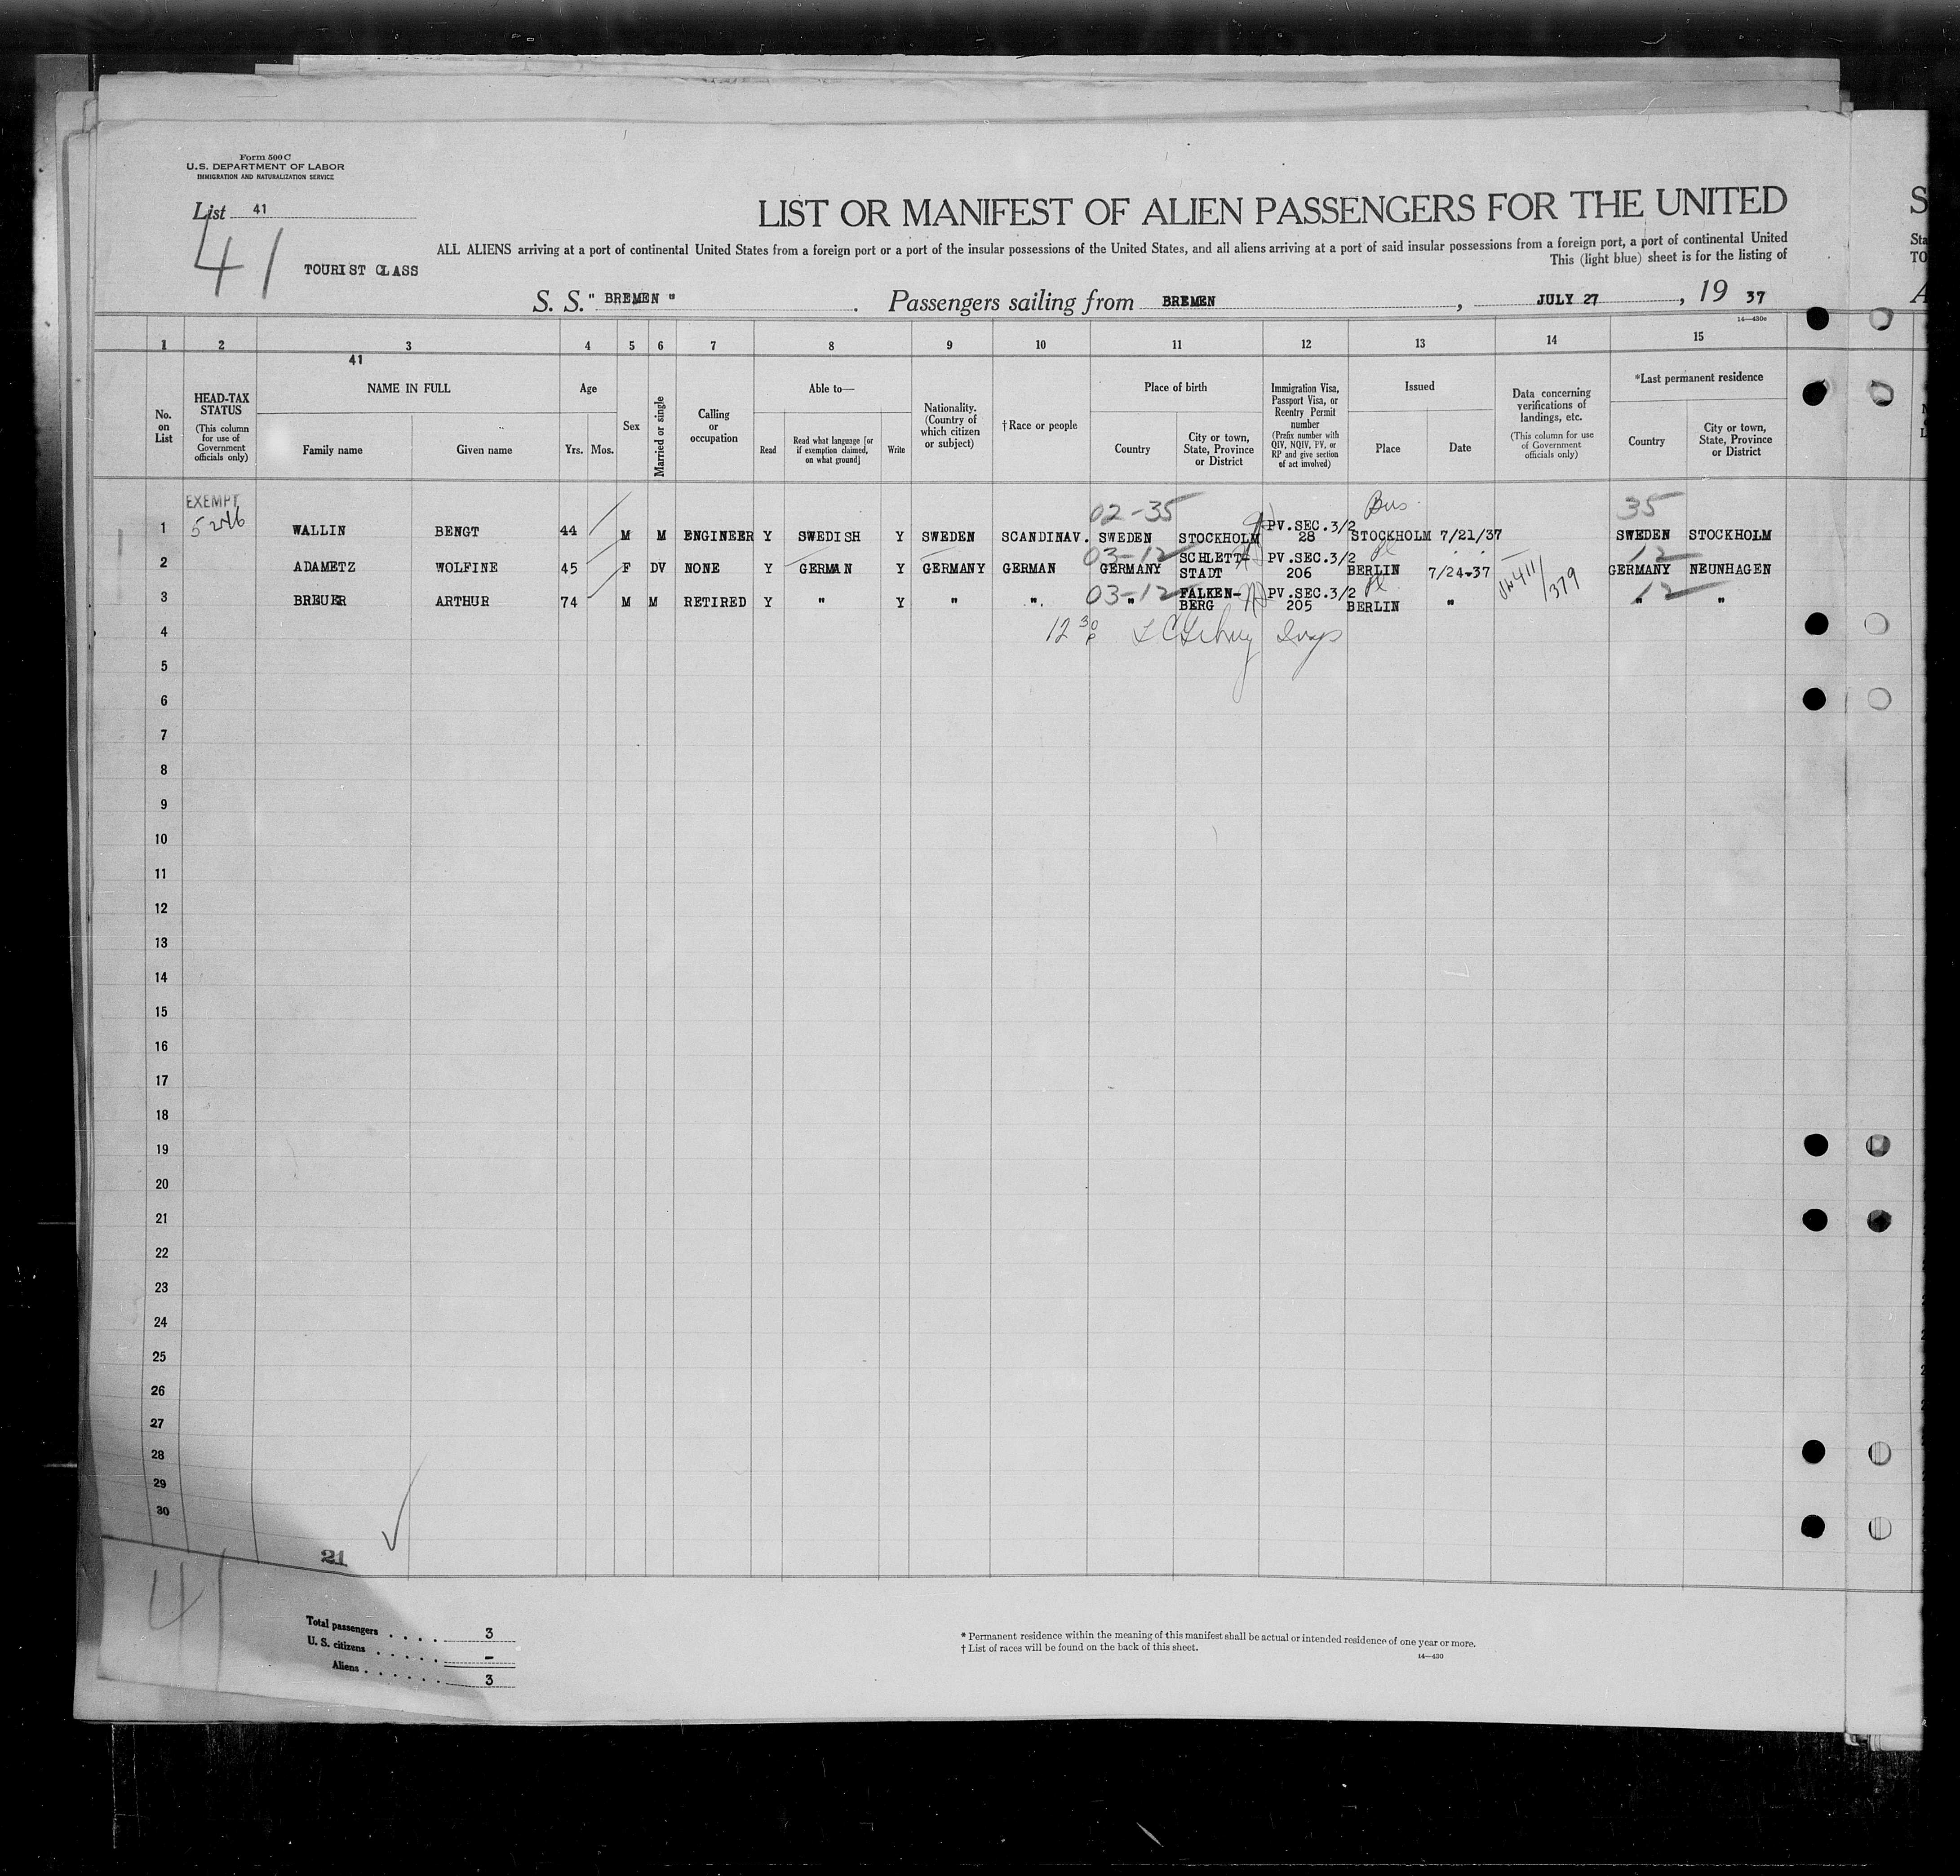 Form 500 C
U. S. DEPARTMENT OF LABOR
IMMIGRATION AND NATURALIZATION SERVICE
List 41
41
TOURIST CLASS
LIST OR MANIFEST OF ALIEN PASSENGERS FOR THE UNITED
ALL ALIENS arriving at a port of continental United States from a foreign port or a port of the insular possessions of the United States, and all aliens arriving at a port of said insular possessions from a foreign port, a port of continental United
This (light blue) sheet is for the listing of
S. S. " BREMEN " . Passengers sailing from BREMEN , JULY 27 , 19 37
14—430c
1 2 3 4 5 6 7 8 9 10 11 12 13 14 15
41
No. on List
HEAD-TAX STATUS (This column for use of Government officials only)
NAME IN FULL
Family name Given name
Age
Yrs. Mos.
Sex
Married or single
Calling or occupation
Able to—
Read Read what language [or if exemption claimed, on what ground] Write
Nationality. (Country of which citizen or subject)
†Race or people
Place of birth
Country City or town, State, Province or District
Immigration Visa, Passport Visa, or Reentry Permit number (Prefix number with QIV, NQIV, PV, or RP and give section of act involved)
Issued
Place Date
Data concerning verifications of landings, etc. (This column for use of Government officials only)
*Last permanent residence
Country City or town, State, Province or District
EXEMPT 02-35 Bus. 35
1 WALLIN BENGT 44 M M ENGINEER Y SWEDISH Y SWEDEN SCANDINAV. SWEDEN STOCKHOLM PV.SEC.3/2 28 STOCKHOLM 7/21/37 SWEDEN STOCKHOLM
03-12 12
2 ADAMETZ WOLFINE 45 F DV NONE Y GERMAN Y GERMANY GERMAN GERMANY SCHLETT-STADT PV.SEC.3/2 206 BERLIN 7/24-37 GERMANY NEUNHAGEN
03-12 12
3 BREUER ARTHUR 74 M M RETIRED Y " Y " " " FALKEN-BERG PV.SEC.3/2 205 BERLIN " " "
411/379
12 30 P
4
5
6
7
8
9
10
11
12
13
14
15
16
17
18
19
20
21
22
23
24
25
26
27
28
29
30
21
41
Total passengers . . . . 3
U. S. citizens . . . . . -
Aliens . . . . . . 3
* Permanent residence within the meaning of this manifest shall be actual or intended residence of one year or more.
† List of races will be found on the back of this sheet.
14—430